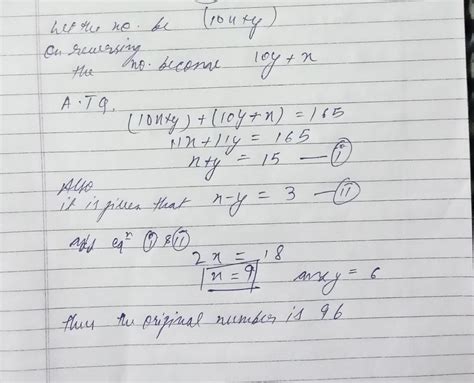 Let the no. be (10x+y)
On reversing
the no. become 10y + x
A.T.Q.
(10x+y) + (10y+x) = 165
11x + 11y = 165
x+y = 15 — (i)
Also
it is given that x-y = 3 — (ii)
add eqn (i) & (ii)
2x = 18
x = 9 and y = 6
thus the original number is 96